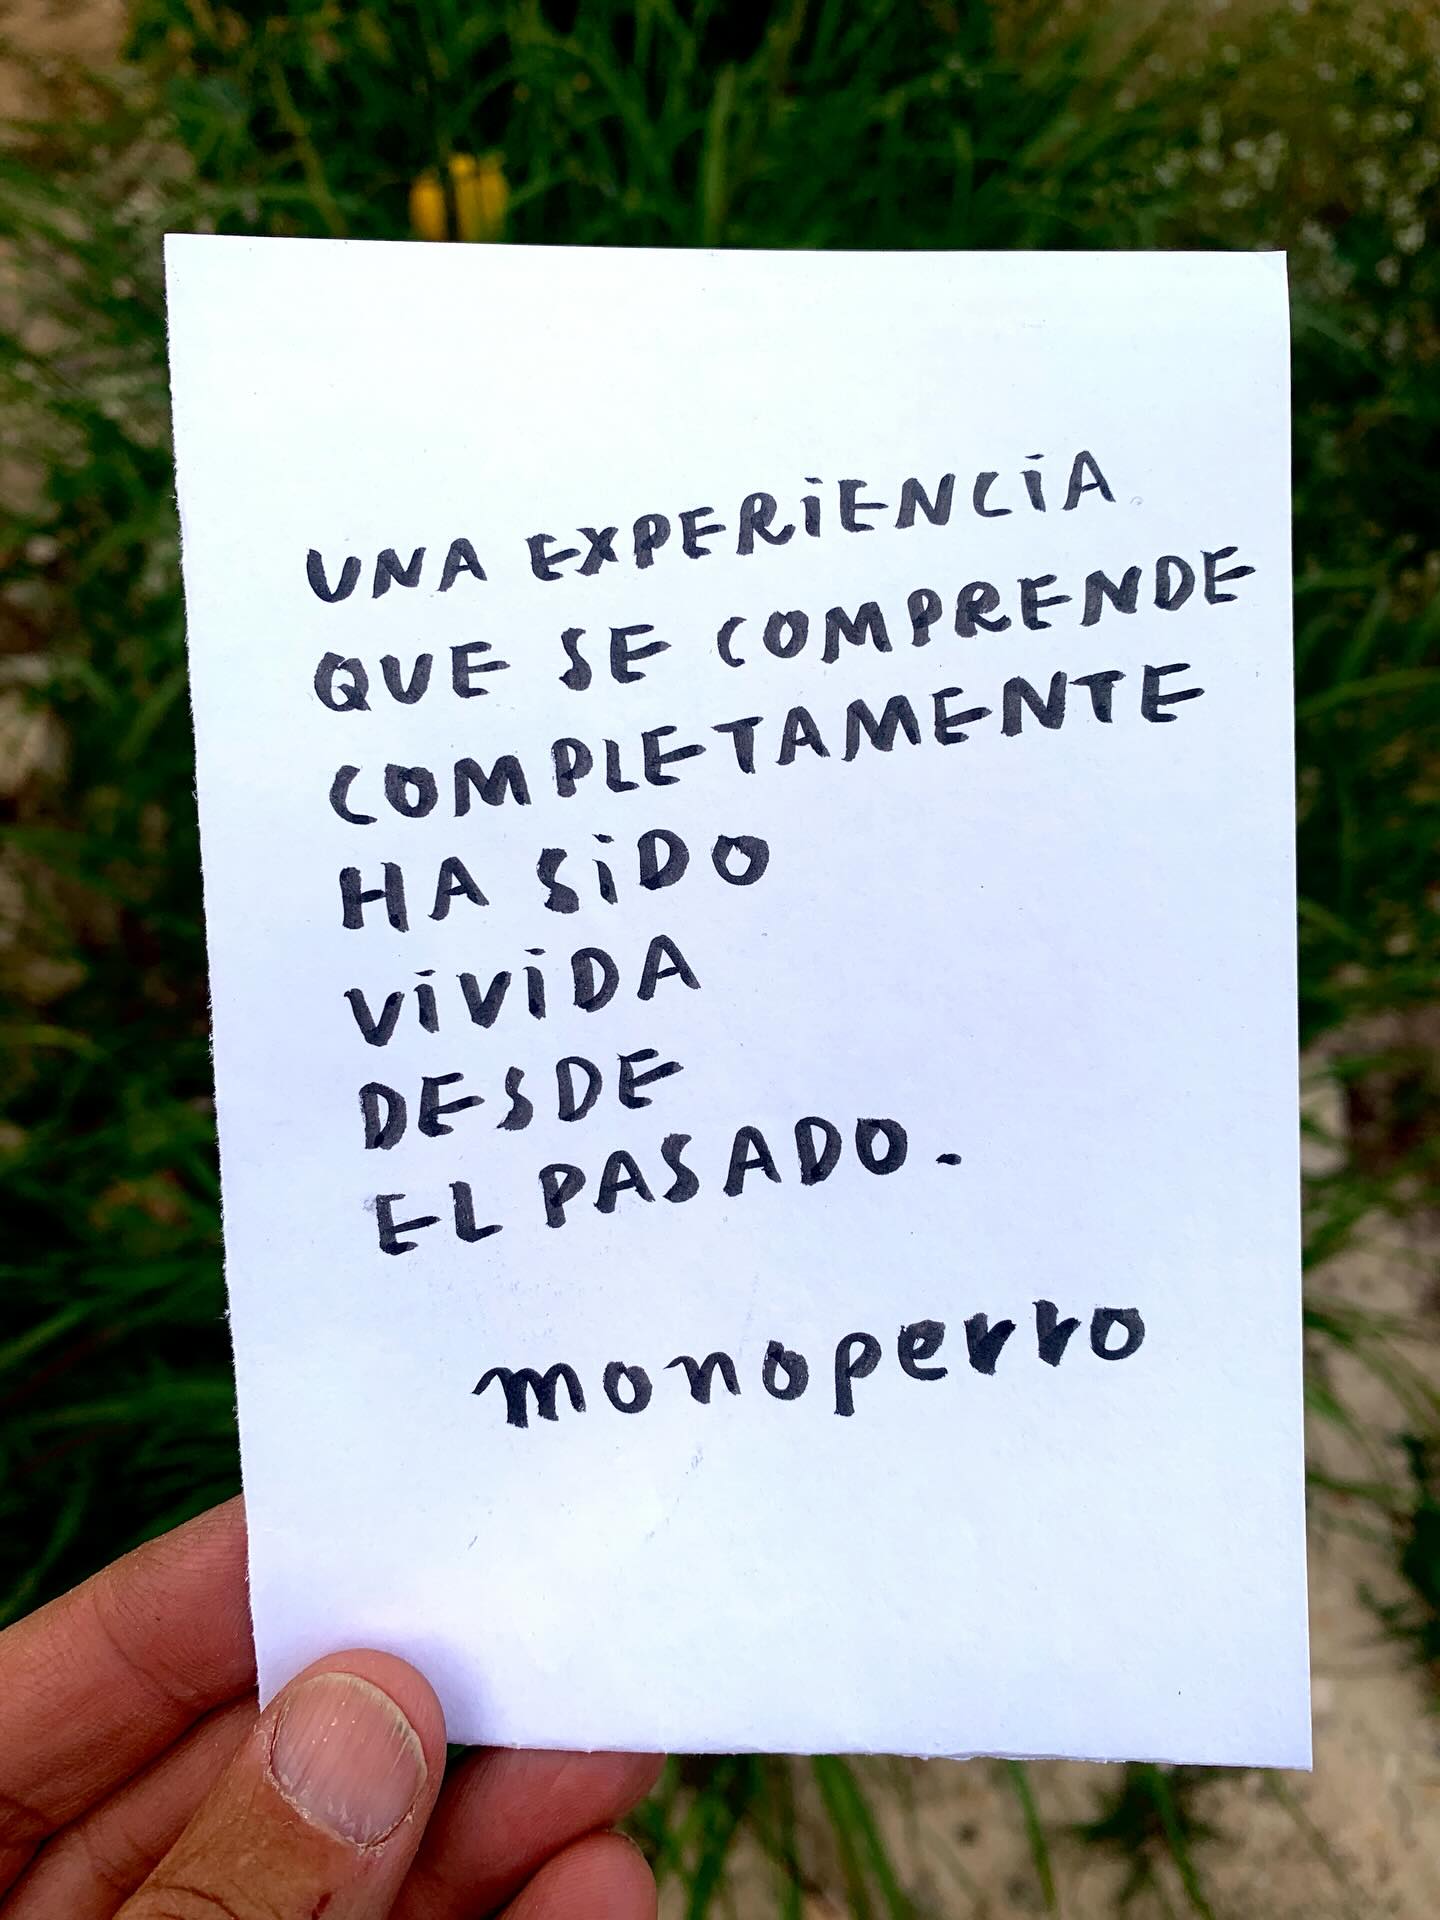 UNA EXPERIENCIA
QUE SE COMPRENDE
COMPLETAMENTE
HA SIDO
VIVIDA
DESDE
EL PASADO.
monoperro